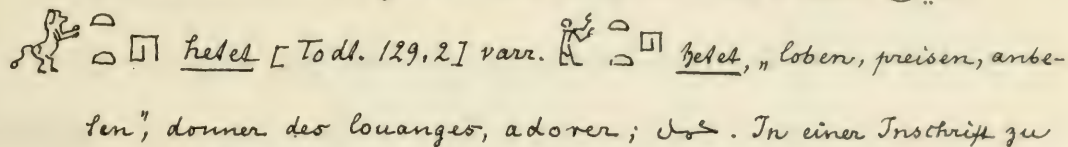 hetet [Todt. 129,2] varr. hetet, „loben, preisen, anbe-
ten”, donner des louanges, adorer; . In einer Inschrift zu